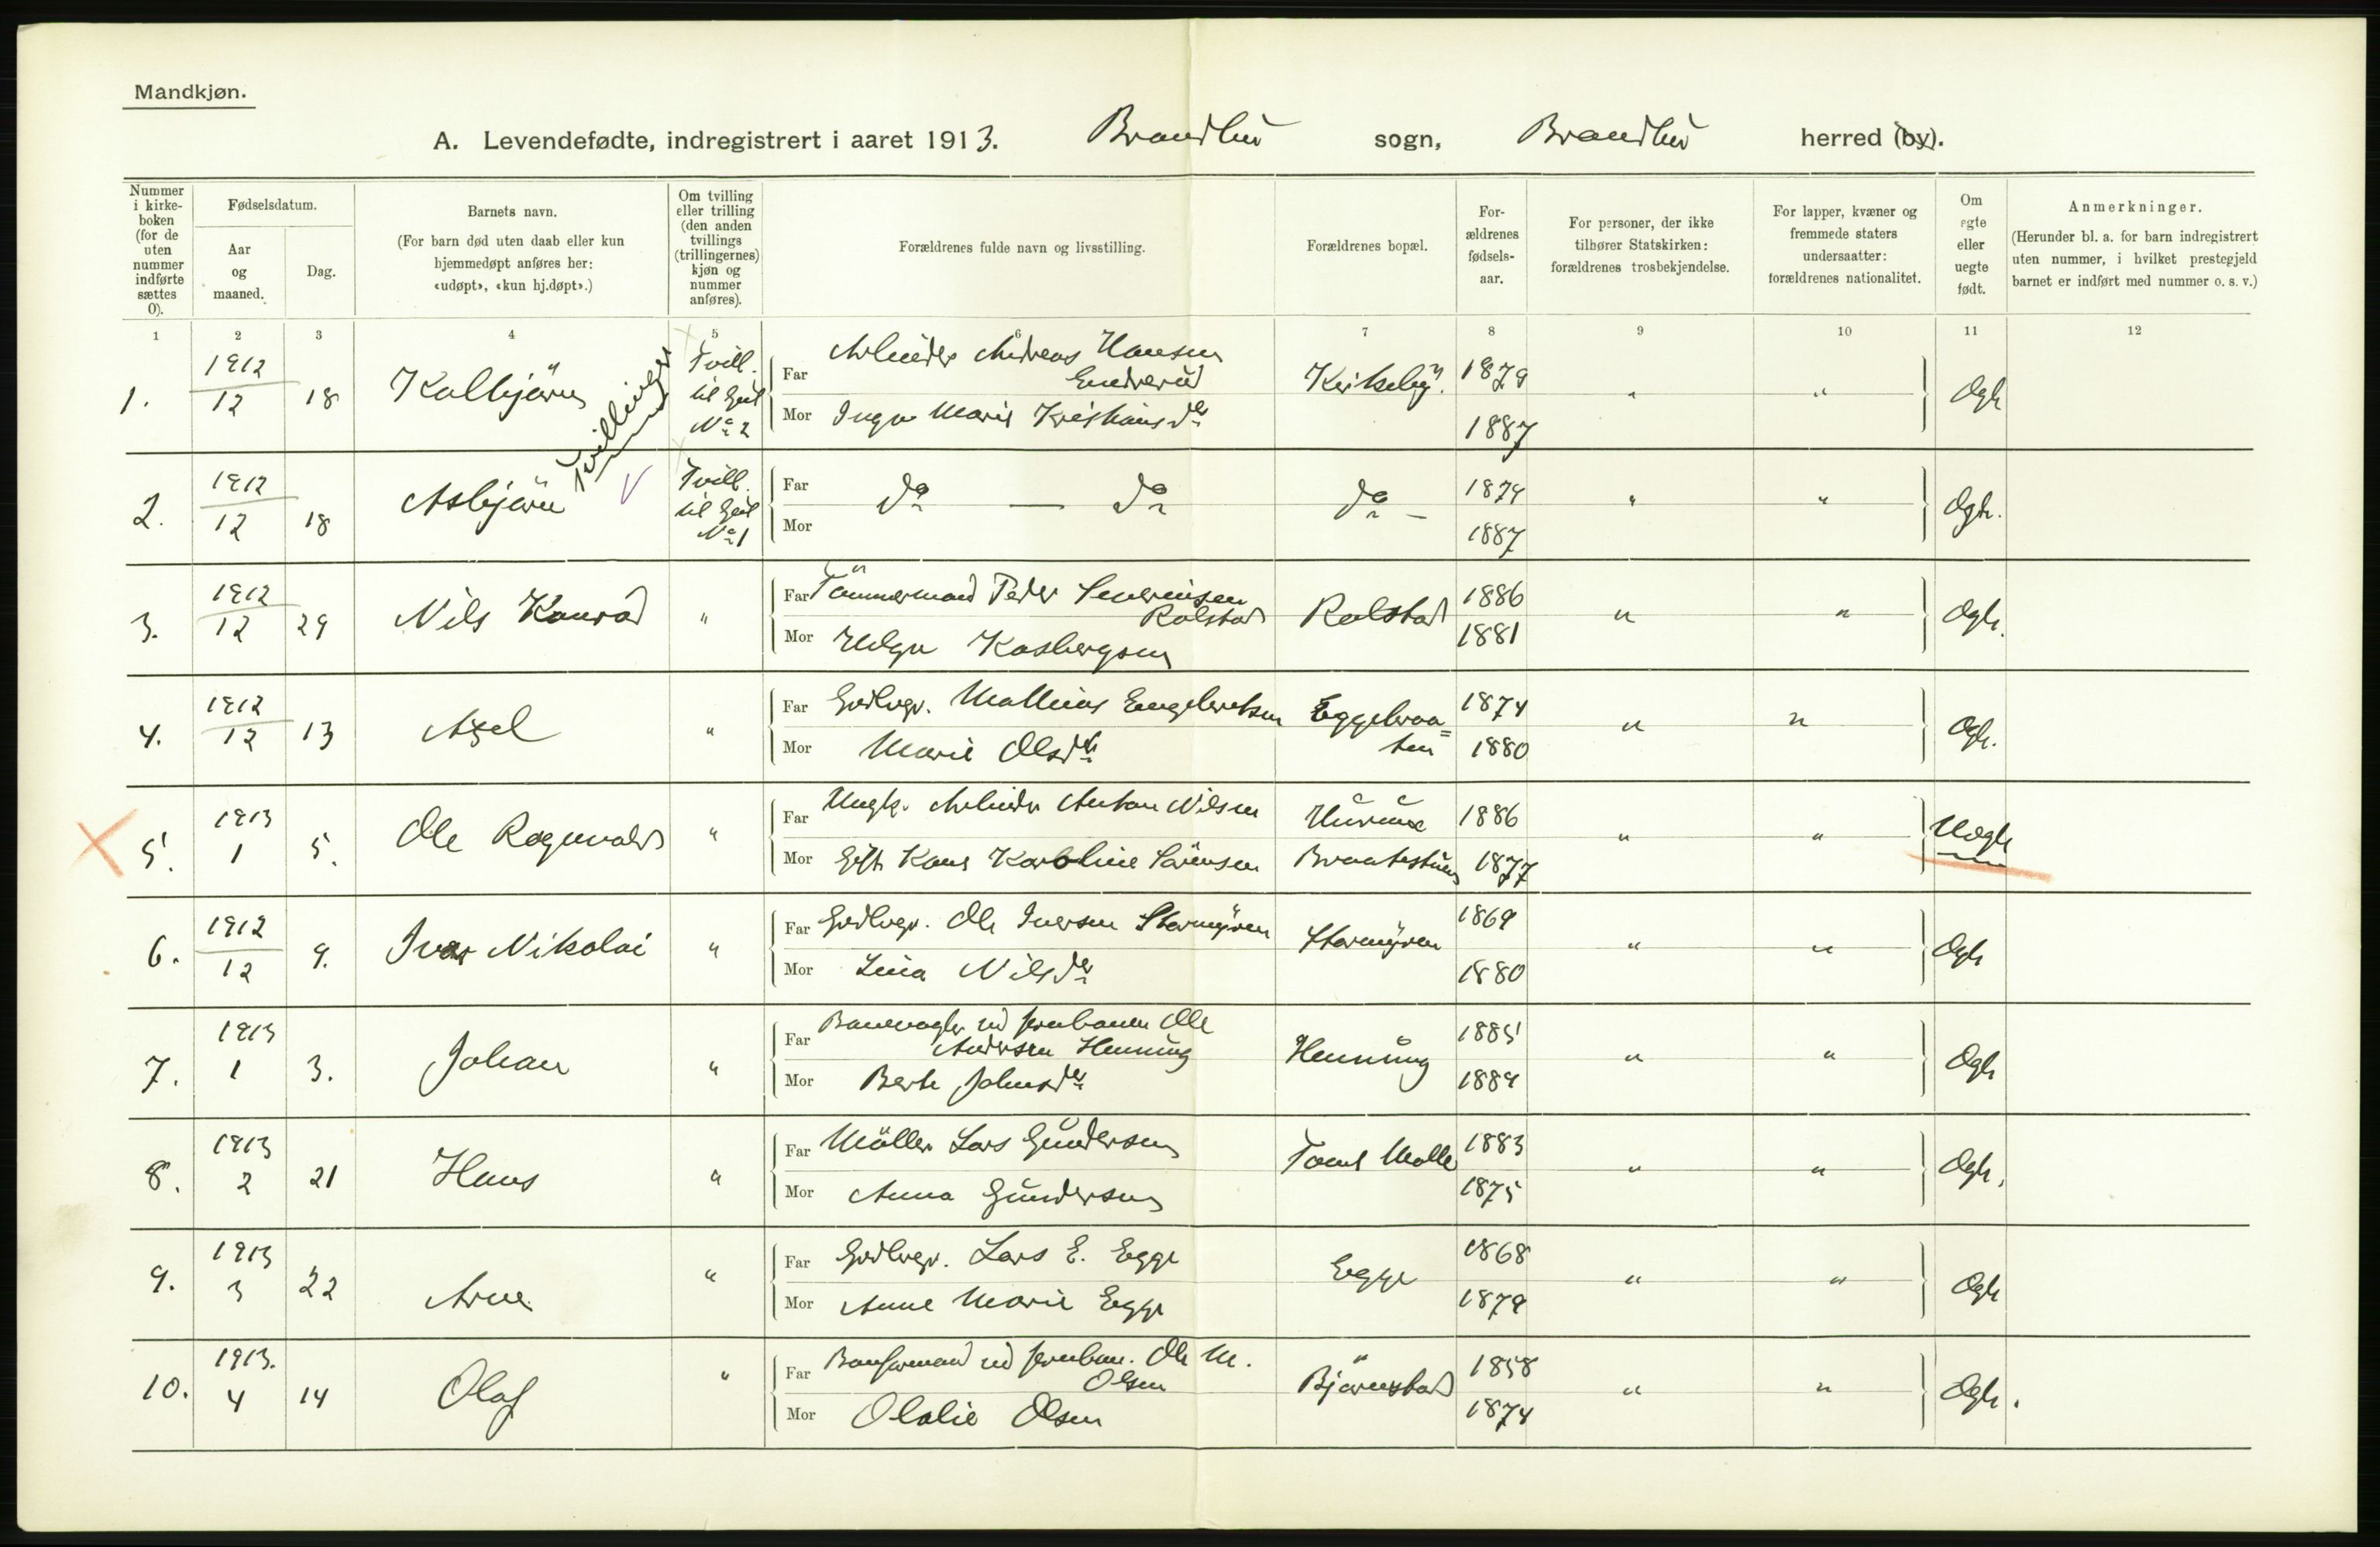 Mandkjøn.
A. Levendefødte, indregistrert i aaret 1913. Brandbu sogn, Brandbu herred (by).
Nummer i kirke-boken (for de uten nummer indførte sættes 0).
Fødselsdatum.
Aar og maaned.
Dag.
Barnets navn.
(For barn død uten daab eller kun hjemmedøpt anføres her: «udøpt», «kun hj.døpt».)
Om tvilling eller trilling (den anden tvillings (trillingernes) kjøn og nummer anføres).
Forældrenes fulde navn og livsstilling.
Forældrenes bopæl.
For-ældrenes fødsels-aar.
For personer, der ikke tilhører Statskirken: forældrenes trosbekjendelse.
For lapper, kvæner og fremmede staters undersaatter: forældrenes nationalitet.
Om egte eller uegte født.
Anmerkninger.
(Herunder bl. a. for barn indregistrert uten nummer, i hvilket prestegjeld barnet er indført med nummer o. s. v.)
1 2 3 4 5 6 7 8 9 10 11 12
1. 1912 12 18 Kolbjörn Tvillinger Tvill. til Gut No 2
Far Arbeider Andreas Hansen Endrerud 1879
Mor Inga Marie Kristiansdr 1887 " " Ogte
2. 1912 12 18 Asbjörn Tvill. til Gut No 1
Far do — do do — 1874
Mor 1887 " " Ogte.
3. 1912 12 29 Nils Konrad "
Far Tömmermand Peder Severinsen Rolstad Rolstad 1886
Mor Helga Kasbergsen 1881 " " Ogte.
4. 1912 12 13 Axel "
Far Gaardbrgr. Mathias Engebretsen Eggebraaten 1874
Mor Marie Olsdtr 1880 " " Ogte.
5. 1913 1 5. Ole Ragnvald "
Far Ungk. Arbeider Anton Nilsen 1886
Mor Gift Kone Karoline Sörensen Braatestuen 1877 " " Uogte
6. 1912 12 9. Ivar Nikolai "
Far Gaardbrgr. Ole Iversen Stormyren Stormyren 1869
Mor Lina Nilsdr 1880 " " Ogte
7. 1913 1 3. Johan "
Far Banevogter ved Jernbanen Ole Andersen Henning Henning 1885
Mor Berte Johnsdr 1884 " " Ogte
8. 1913 2 21 Hans "
Far Möller Lars Gundersen Tomt Mølle 1883
Mor Anna Gundersen 1875 " " Ogte.
9. 1913 3 22 Arne "
Far Gaardbrgr. Lars E. Egge Egge 1868
Mor Anne Marie Egge 1879 " " Ogte
10. 1913. 4 14 Olaf "
Far Banformand ved Jernban. Ole M. Olsen Björnstad 1858
Mor Olalie Olsen 1874 " " Ogte.